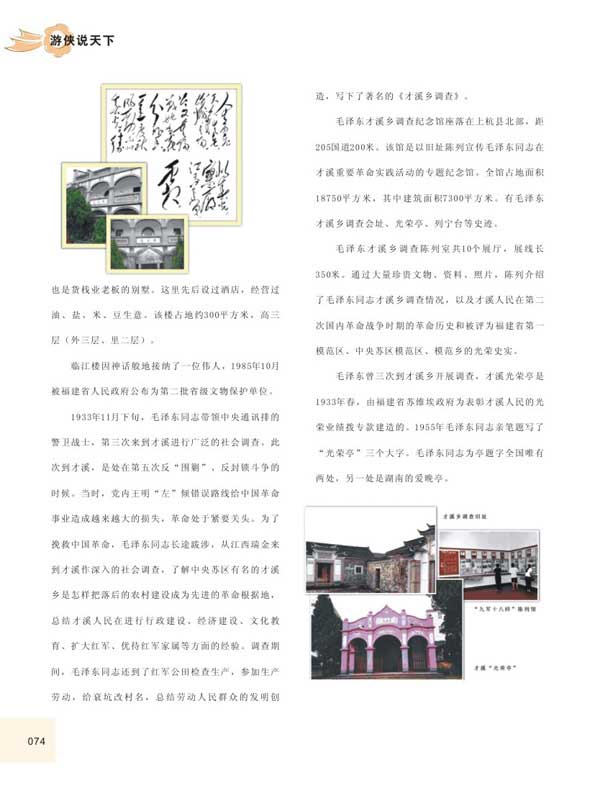 游侠说天下
也是货栈业老板的别墅。这里先后设过酒店，经营过
油、盐、米、豆生意。该楼占地约300平方米，高三
层（外三层、里二层）。
临江楼因神话般地接纳了一位伟人，1985年10月
被福建省人民政府公布为第二批省级文物保护单位。
1933年11月下旬，毛泽东同志带领中央通讯排的
警卫战士，第三次来到才溪进行广泛的社会调查。此
次到才溪，是处在第五次反“围剿”、反封锁斗争的
时候。当时，党内王明“左”倾错误路线给中国革命
事业造成越来越大的损失，革命处于紧要关头。为了
挽救中国革命，毛泽东同志长途跋涉，从江西瑞金来
到才溪作深入的社会调查，了解中央苏区有名的才溪
乡是怎样把落后的农村建设成为先进的革命根据地，
总结才溪人民在进行行政建设、经济建设、文化教
育、扩大红军、优待红军家属等方面的经验。调查期
间，毛泽东同志还到了红军公田检查生产，参加生产
劳动，给衰坑改村名，总结劳动人民群众的发明创
造，写下了著名的《才溪乡调查》。
毛泽东才溪乡调查纪念馆座落在上杭县北部，距
205国道200米。该馆是以旧址陈列宣传毛泽东同志在
才溪重要革命实践活动的专题纪念馆。全馆占地面积
18750平方米，其中建筑面积7300平方米。有毛泽东
才溪乡调查会址、光荣亭、列宁台等史迹。
毛泽东才溪乡调查陈列室共10个展厅，展线长
350米。通过大量珍贵文物、资料、照片，陈列介绍
了毛泽东同志才溪乡调查情况，以及才溪人民在第二
次国内革命战争时期的革命历史和被评为福建省第一
模范区、中央苏区模范区、模范乡的光荣史实。
毛泽东曾三次到才溪乡开展调查，才溪光荣亭是
1933年春，由福建省苏维埃政府为表彰才溪人民的光
荣业绩拨专款建造的。1955年毛泽东同志亲笔题写了
“光荣亭”三个大字。毛泽东同志为亭题字全国唯有
两处，另一处是湖南的爱晚亭。
才溪乡调查旧址
“九军十八师”陈列馆
才溪“光荣亭”
074